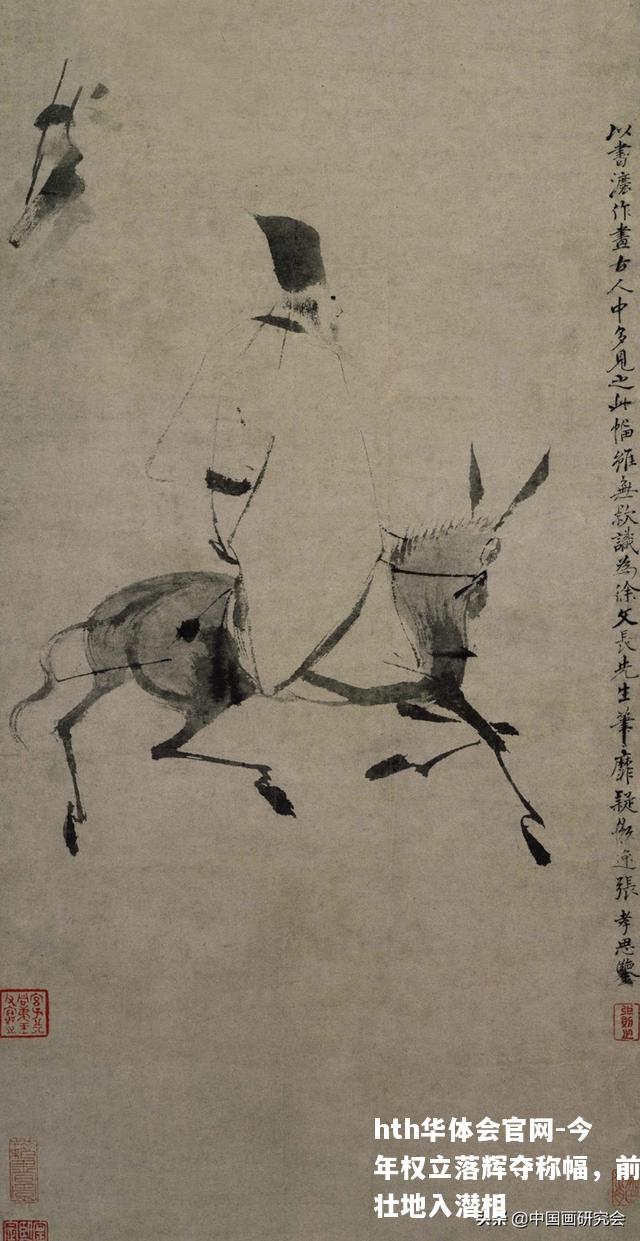 以書灋作畫古人中多見之此幅雖無款識為徐文長先生筆靡疑懶逸張孝思鑒
張則之
hth华体会官网-今
年权立落辉夺称幅，前
壮地入潜相
头条 @中国画研究会